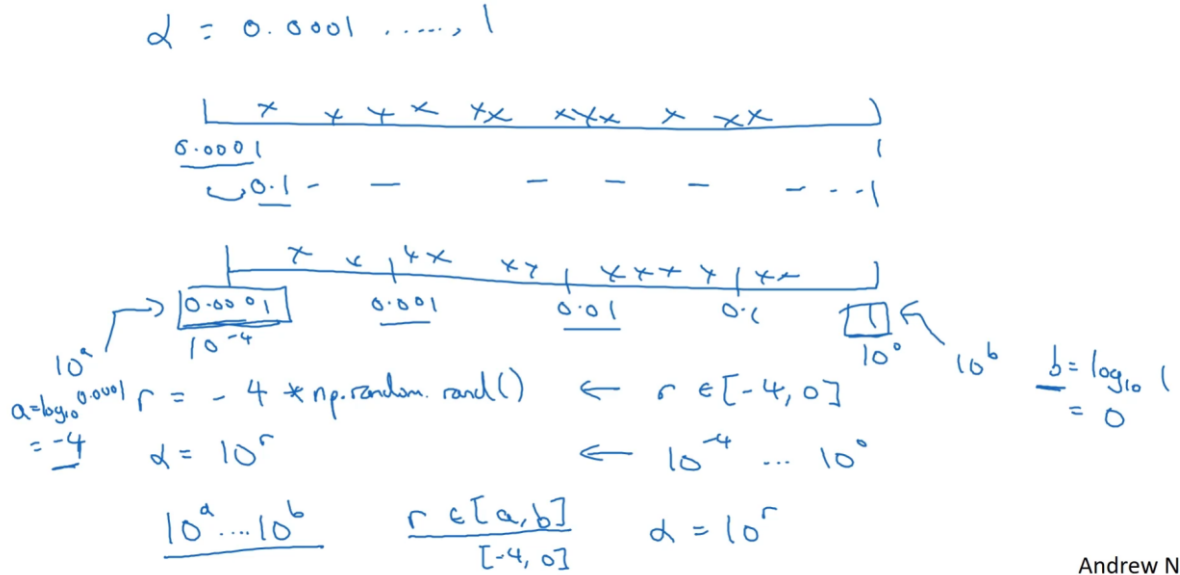 α = 0.0001 ....., 1
x x x x x x x x x x x x
0.0001 1
0.1 - - - - - - - - 1
x x x x x x x x x x x x x
0.0001 0.001 0.01 0.1 1
10^-4 10^0
10^a 10^b b = log₁₀ 1
a = log₁₀ 0.0001 r = -4 * np.random.rand() ← r ∈ [-4, 0] = 0
= -4 α = 10^r ← 10^-4 ... 10^0
10^a .... 10^b r ∈ [a, b] α = 10^r
[-4, 0]
Andrew N